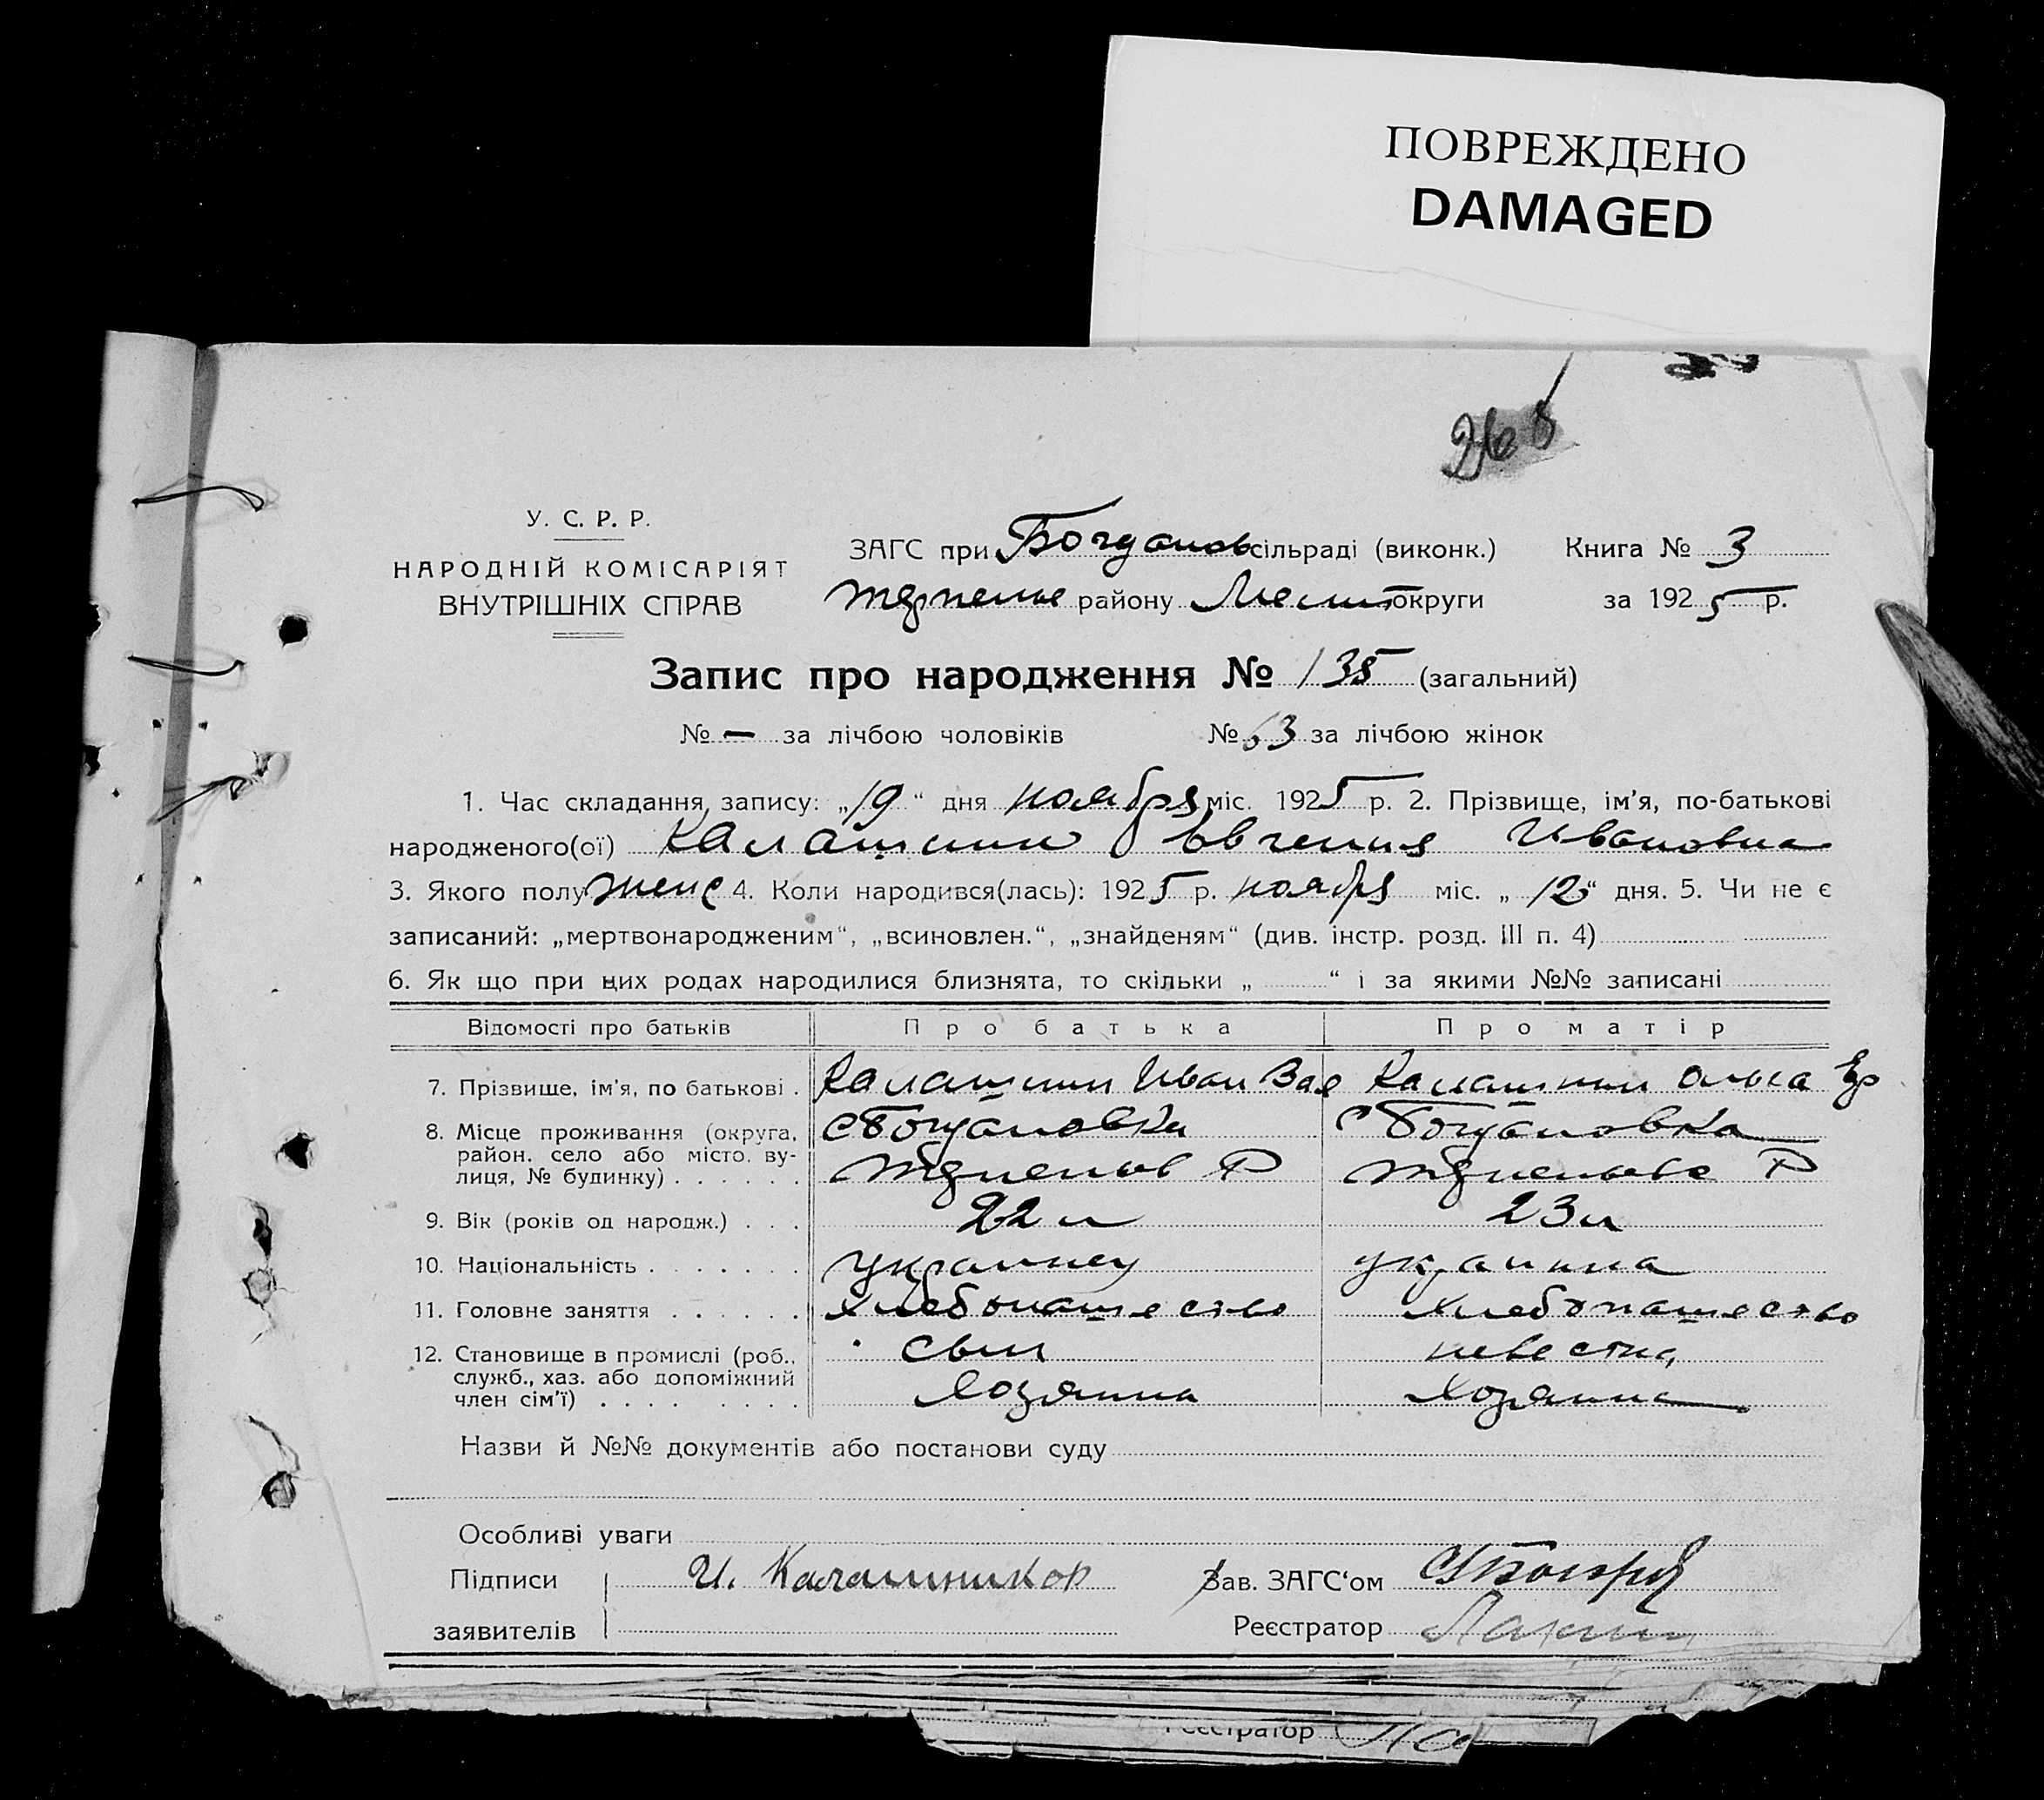 ПОВРЕЖДЕНО
DAMAGED
У. С. Р. Р.
НАРОДНІЙ КОМІСАРІЯТ
ВНУТРІШНІХ СПРАВ
ЗАГС при Богданов сільраді (виконк.) Книга № 3
району Мелит округи за 1925 р.
Запис про народження № 135 (загальний)
№ — за лічбою чоловіків № 63 за лічбою жінок
1. Час складання запису: „19“ дня ноября міс. 1925 р. 2. Прізвище, ім'я, по-батькові
народженого(ої) Калашник Евгения Ивановна
3. Якого полу женс 4. Коли народився(лась): 1925 р. ноября міс. „12“ дня. 5. Чи не є
записаний: „мертвонародженим“, „всиновлен.“, „знайденям“ (див. інстр. розд. III п. 4)
6. Як що при цих родах народилися близнята, то скільки „ “ і за якими №№ записані
Відомості про батьків Про батька Про матір
7. Прізвище, ім'я, по батькові . Калашник Иван Вас Калашник Ольга
8. Місце проживання (округа, с Богдановка с Богдановка
район. село або місто. ву-
лиця, № будинку) . . . . . . Р Р
9. Вік (років од народж.) . . . 22 л 23 л
10. Національність . . . . . . . украинец украинка
11. Головне заняття . . . . . . хлебопашество хлебопашество
12. Становище в промислі (роб., сын невестка
служб., хаз. або допоміжний
член сім'ї) . . . . . . . . хозяина хозяина
Назви й №№ документів або постанови суду
Особливі уваги
Підписи И. Калашников Зав. ЗАГС‘ом
заявителів Реєстратор
Реєстратор